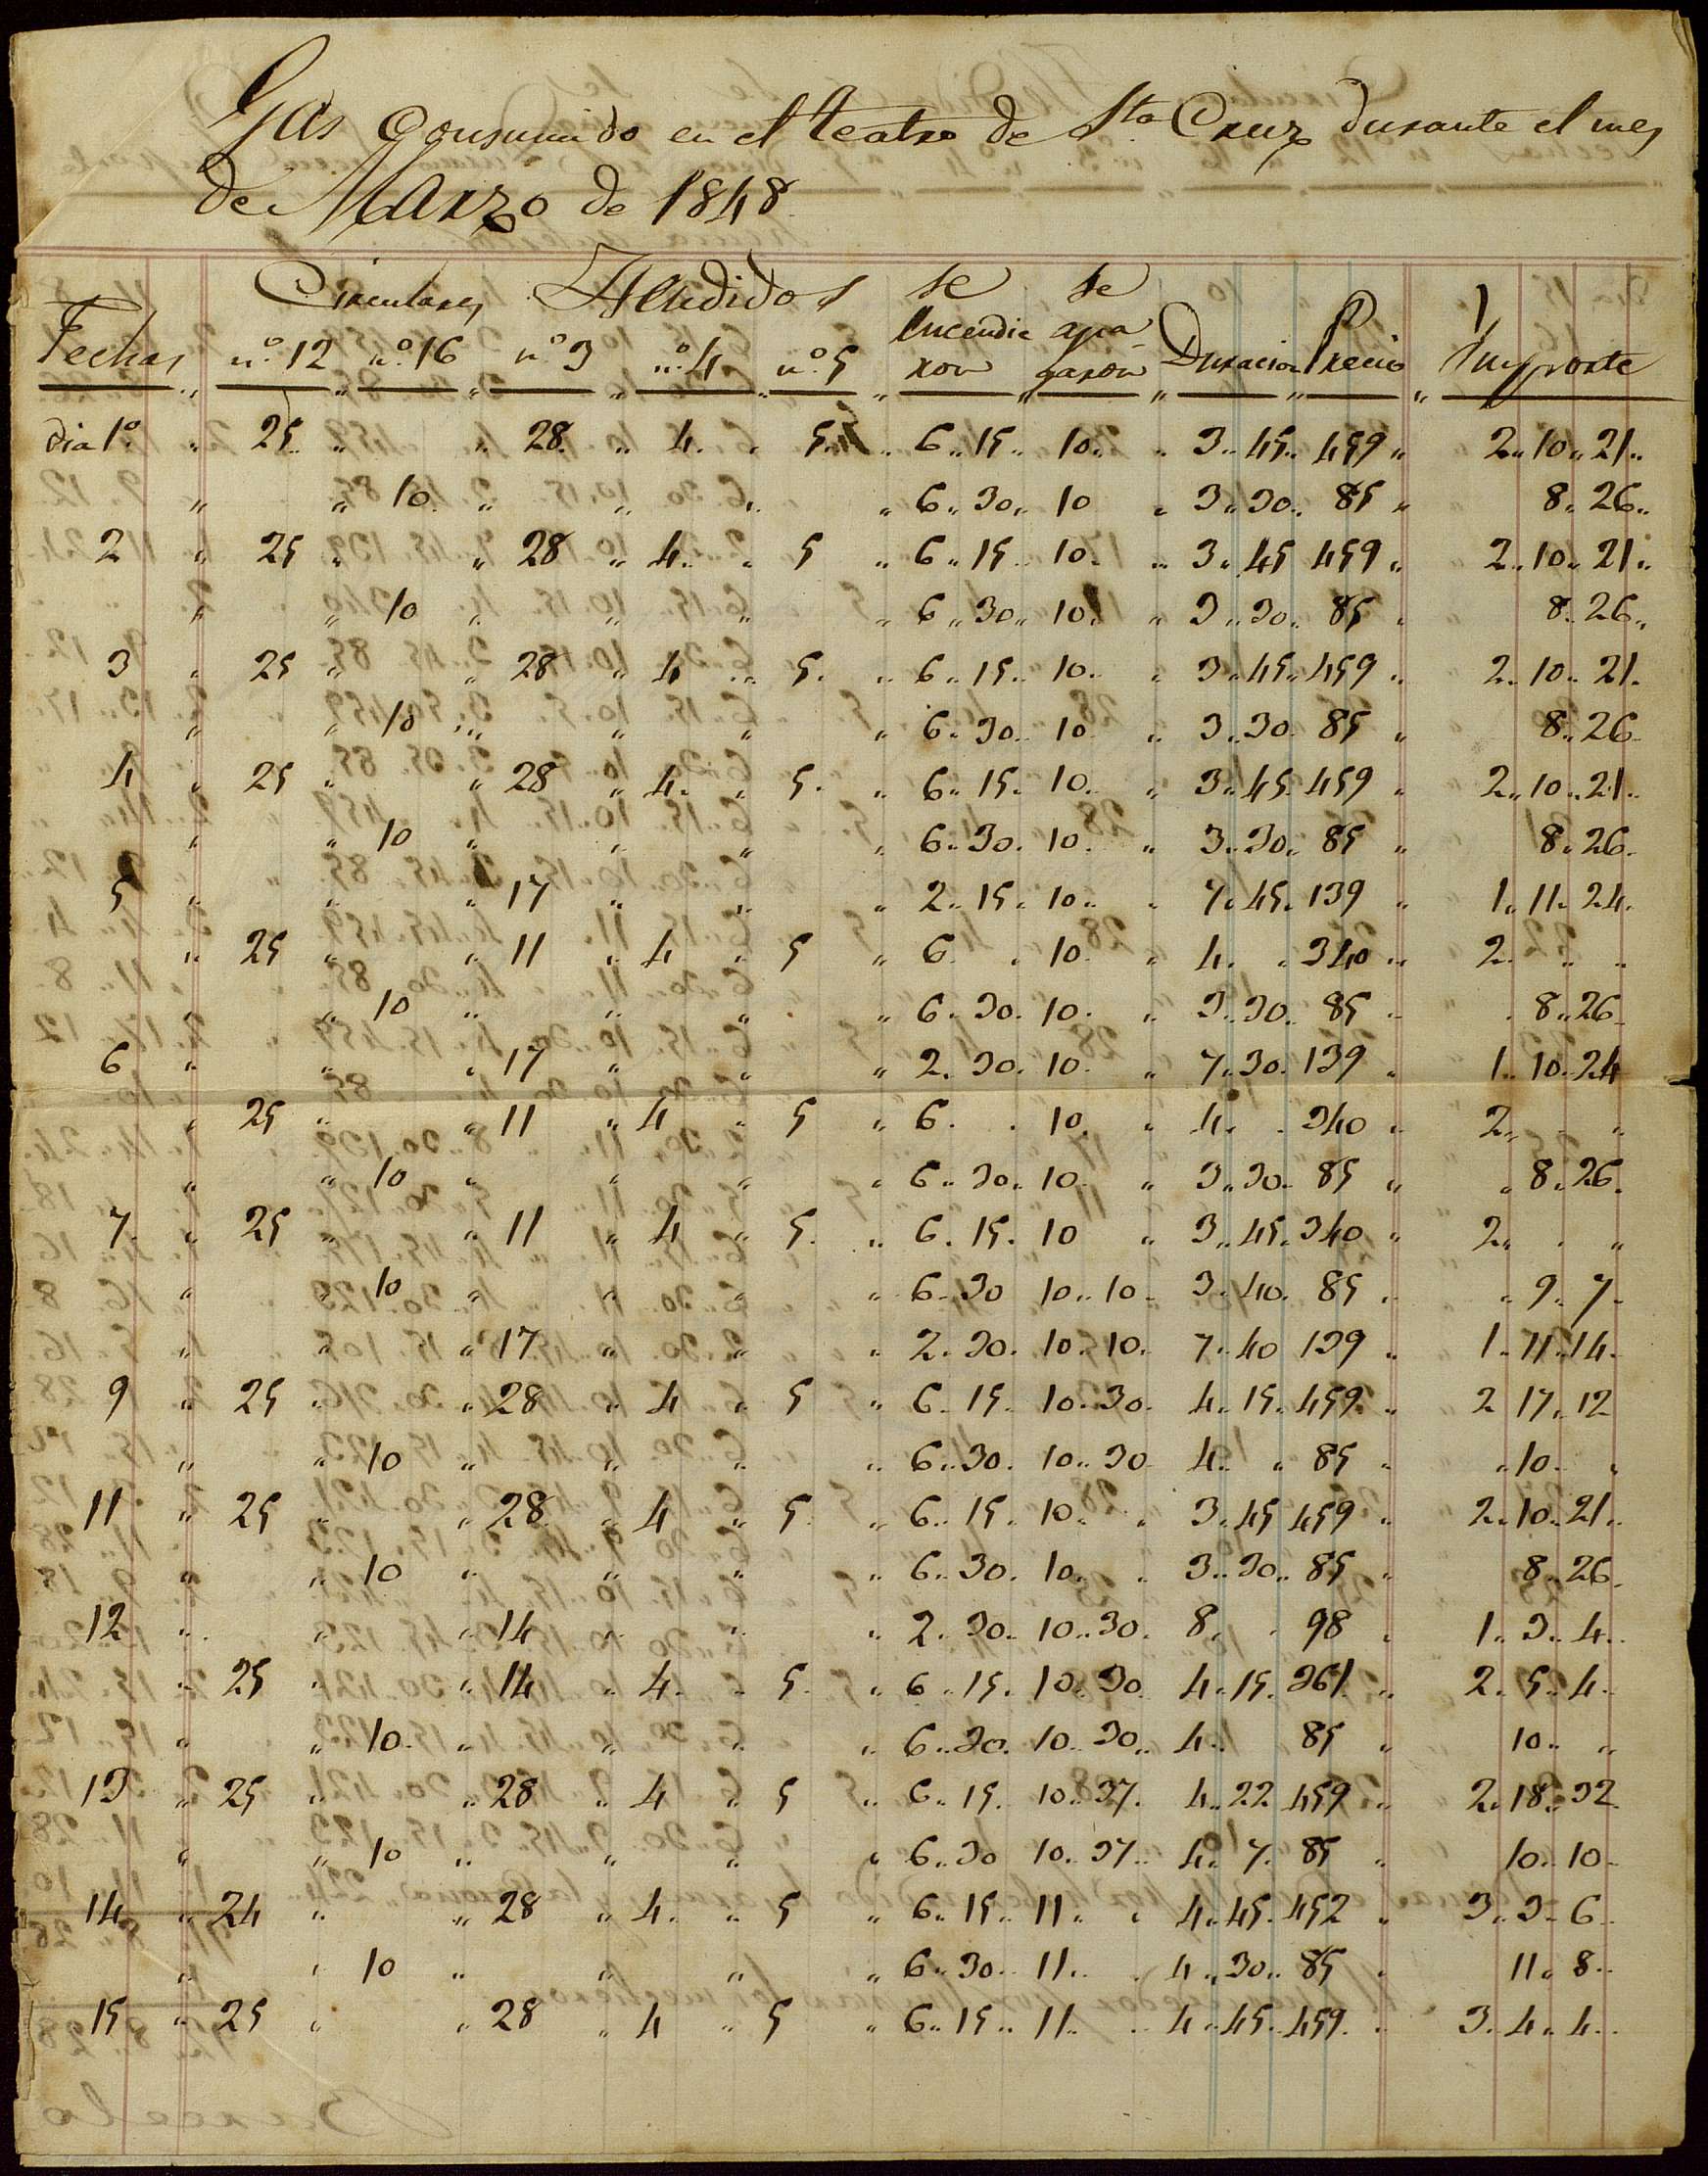 Gas Consumido en el teatro de Sta. Cruz durante el mes
de Marzo de 1848
Circulares Hendidos se se
Fechas nº 12 nº 16 nº 3 nº 4 nº 5 Encendie ron apa garon Duracion Precio Importe
dia 1º. „ 25 „ „ 28. „ 4. „ 5. „ 6 „ 15 „ 10 „ „ 3 „ 45 „ 459 „ 2 „ 10 „ 21 „
„ „ 10. „ „ „ „ 6 „ 30 „ 10 „ 3 „ 30 „ 85 „ 8 „ 26 „
2 „ 25 „ „ 28 „ 4. „ 5 „ 6 „ 15 „ 10. „ 3 „ 45 459 „ 2 „ 10 „ 21 „
„ „ 10 „ „ „ „ 6 „ 30 „ 10. „ 3 „ 30 „ 85 „ 8 „ 26 „
3 „ 25 „ „ 28 „ 4 „ 5. „ 6 „ 15 „ 10. „ 3 „ 45 „ 459 „ 2 „ 10 „ 21.
„ „ 10 „ „ „ „ 6 „ 30 „ 10. „ 3 „ 30. 85 „ 8 „ 26
4 „ 25 „ „ 28 „ 4. „ 5. „ 6 „ 15. 10. „ 3 „ 45. 459 „ 2 „ 10 „ 21 „
„ „ 10 „ „ „ „ 6 „ 30. 10. „ 3 „ 30 „ 85 „ 8 „ 26.
5 „ „ „ 17 „ „ „ 2 „ 15 „ 10 „ „ 7 „ 45. 139 „ 1 „ 11 „ 24.
„ 25 „ „ 11 „ 4 „ 5 „ 6. „ 10. „ 4. „ 340 „ 2. „ „
„ 10 „ „ „ „ 6 „ 30. 10. „ 3 „ 30 „ 85 „ 8 „ 26
6 „ „ „ 17 „ „ „ 2 „ 30. 10. „ 7 „ 30. 139 „ 1 „ 10 „ 24
„ 25 „ „ 11 „ 4 „ 5 „ 6. . 10. „ 4. . 340 „ 2 „ . „
„ „ 10 „ „ „ „ 6 „ 30 „ 10. „ 3 „ 30. 85 „ „ 8 „ 26.
7. „ 25 „ „ 11 „ 4 „ 5. „ 6. 15. 10 „ 3 „ 45. 340 „ 2 „ . „
„ „ 10 „ „ „ „ 6 „ 30 10 „ 10 „ 3 „ 40. 85 „ „ 9 „ 7 „
„ „ „ 17 „ „ „ 2 „ 30. 10 „ 10. 7 „ 40 139 „ 1 „ 11 „ 14.
9 „ 25 „ „ 28 „ 4 „ 5 „ 6 „ 15. 10 „ 30. 4 „ 15. 459. „ 2 17 „ 12
„ „ 10 „ „ „ „ 6 „ 30. 10 „ 30 4 „ „ 85 „ „ 10. „
11 „ 25 „ „ 28. „ 4 „ 5. „ 6 „ 15 „ 10. „ 3 „ 45 459 „ 2 „ 10 „ 21 „
„ „ 10 „ „ „ „ 6 „ 30. 10. „ 3 „ 30 „ 85 „ 8 „ 26.
12 „ „ „ 14 „ „ „ 2 „ 30. 10 „ 30. 8 „ . 98 „ 1 „ 3 „ 4 „
„ 25 „ „ 14 „ 4. „ 5. „ 6 „ 15. 10 „ 30. 4 „ 15. 361 „ 2 „ 5 „ 4 „
„ „ 10. „ „ „ „ 6 „ 30. 10 „ 30 „ 4 „ 85 „ 10 „ „
13 „ 25 „ „ 28 „ 4 „ 5 „ 6 „ 15. 10 „ 37. 4 „ 22 459 „ 2 „ 18 „ 32
„ „ 10 „ „ „ „ 6 „ 30 10 „ 37 „ 4 „ 7. 85 „ 10 „ 10
14 „ 24 „ „ 28 „ 4. „ 5 „ 6 „ 15 „ 11 „ „ 4 „ 45. 452 „ 3 „ 3 „ 6 „
„ „ 10 „ „ „ „ 6 „ 30 „ 11 „ . 4 „ 30 „ 85 „ 11 „ 8 „
15 „ 25 „ „ 28 „ 4 „ 5 „ 6 „ 15 „ 11 „ . 4 „ 45 „ 459. „ 3 „ 4 „ 4 „